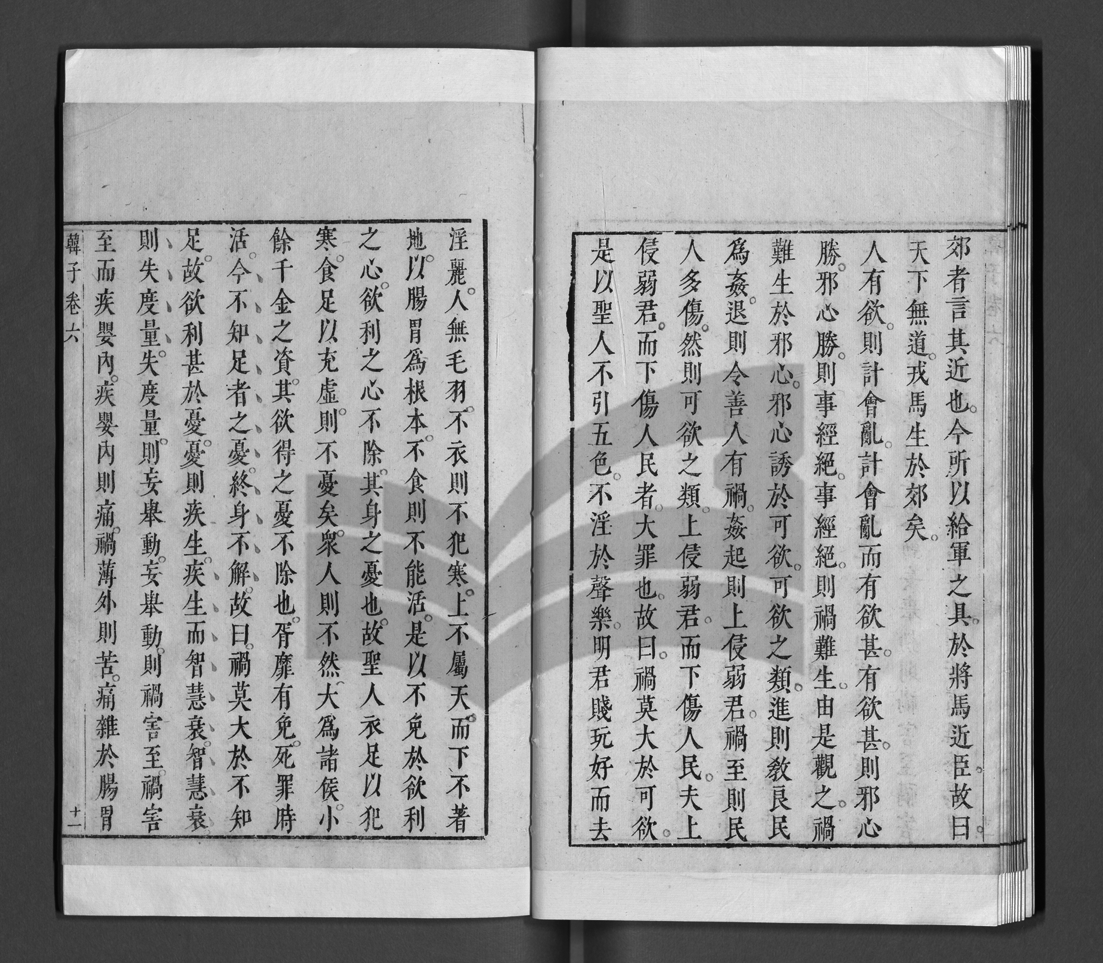 郊者言其近也。今所以給軍之具。於將馬近臣。故曰。
天下無道。戎馬生於郊矣。
人有欲。則計會亂。計會亂而有欲甚。有欲甚。則邪心
勝。邪心勝。則事經絕。事經絕。則禍難生。由是觀之。禍
難生於邪心。邪心誘於可欲。可欲之類。進則教良民
為姦。退則令善人有禍。姦起則上侵弱君。禍至則民
人多傷。然則可欲之類。上侵弱君。而下傷人民。夫上
侵弱君。而下傷人民者。大罪也。故曰。禍莫大於可欲。
是以聖人不引五色。不淫於聲樂。明君賤玩好而去
淫麗。人無毛羽。不衣則不犯寒。上不屬天。而下不著
地。以腸胃為根本。不食則不能活。是以不免於欲利
之心。欲利之心不除。其身之憂也。故聖人衣足以犯
寒。食足以充虛。則不憂矣。眾人則不然。大為諸侯。小
餘千金之資。其欲得之憂不除也。胥靡有免。死罪時
活。今不知足者之憂。終身不解。故曰。禍莫大於不知
足。故欲利甚於憂。憂則疾生。疾生而智慧衰。智慧衰
則失度量。失度量。則妄舉動。妄舉動。則禍害至。禍害
至而疾嬰內。疾嬰內則痛。禍薄外則苦。痛雜於腸胃
韓子卷六
十一